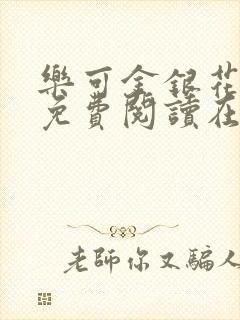 樂可金銀花
免費閱讀在
老師你又騙人